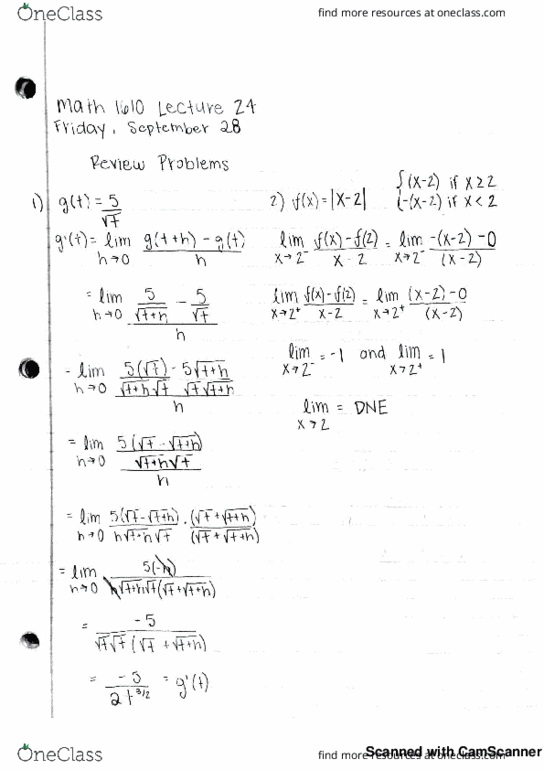 OneClass
find more resources at oneclass.com
Math 1610 Lecture 24
Friday, September 28
Review Problems
1) g(t) = 5/√t
g'(t) = lim h→0 g(t+h) - g(t) / h
= lim h→0 (5/√t+h - 5/√t) / h
- lim h→0 (5(√t)/√t+h√t - 5√t+h/√t√t+h) / h
= lim h→0 (5(√t - √t+h)/√t+h√t) / h
= lim h→0 5(√t-√t+h)/h√t+h√t · (√t+√t+h)/(√t+√t+h)
= lim h→0 5(-h)/h√t+h√t(√t+√t+h)
= -5/√t√t(√t+√t+h)
= -5/2t^3/2 = g'(t)
2) f(x) = |x-2| { (x-2) if x≥2
-(x-2) if x<2
lim x→2⁻ f(x)-f(2)/x-2 = lim x→2⁻ -(x-2)-0/(x-2)
lim x→2⁺ f(x)-f(2)/x-2 = lim x→2⁺ (x-2)-0/(x-2)
lim x→2⁻ = -1 and lim x→2⁺ = 1
lim x→2 = DNE
OneClass
find more resources at oneclass.com
Scanned with CamScanner